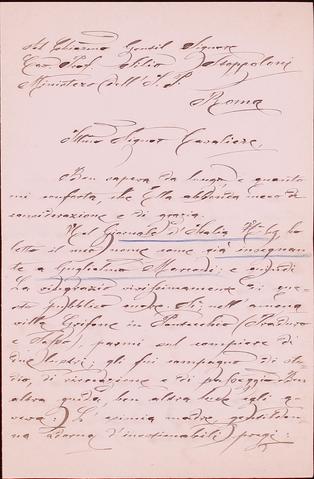 Al Chiarmo Gentil Signore
Cav. Prof. Attilio Stappoloni
Ministero dell'I. P.
Roma
Illmo Signor Cavaliere,
Ben sapeva da lungi, e quanto
mi conforta, che Ella abbonda meco di
considerazione e di grazia.
Nel Giornale d'Italia No 64 ho
letto il mio nome come già insegnan-
te a Guglielmo Marconi; e quindi
La ringrazio vivissimamente di que-
sto pubblico onore. Sì; nell'amena
villa Grifone in Pontecchio (Praduro
e Sasso), parmi sul compiere di
due lustri; gli fui compagno di stu-
dio, di ricreazione e di passeggio. Ben
altra guida, ben altra luce egli a-
veva: L'esimia madre, gentildon-
na Donna d'inestimabili pregi: